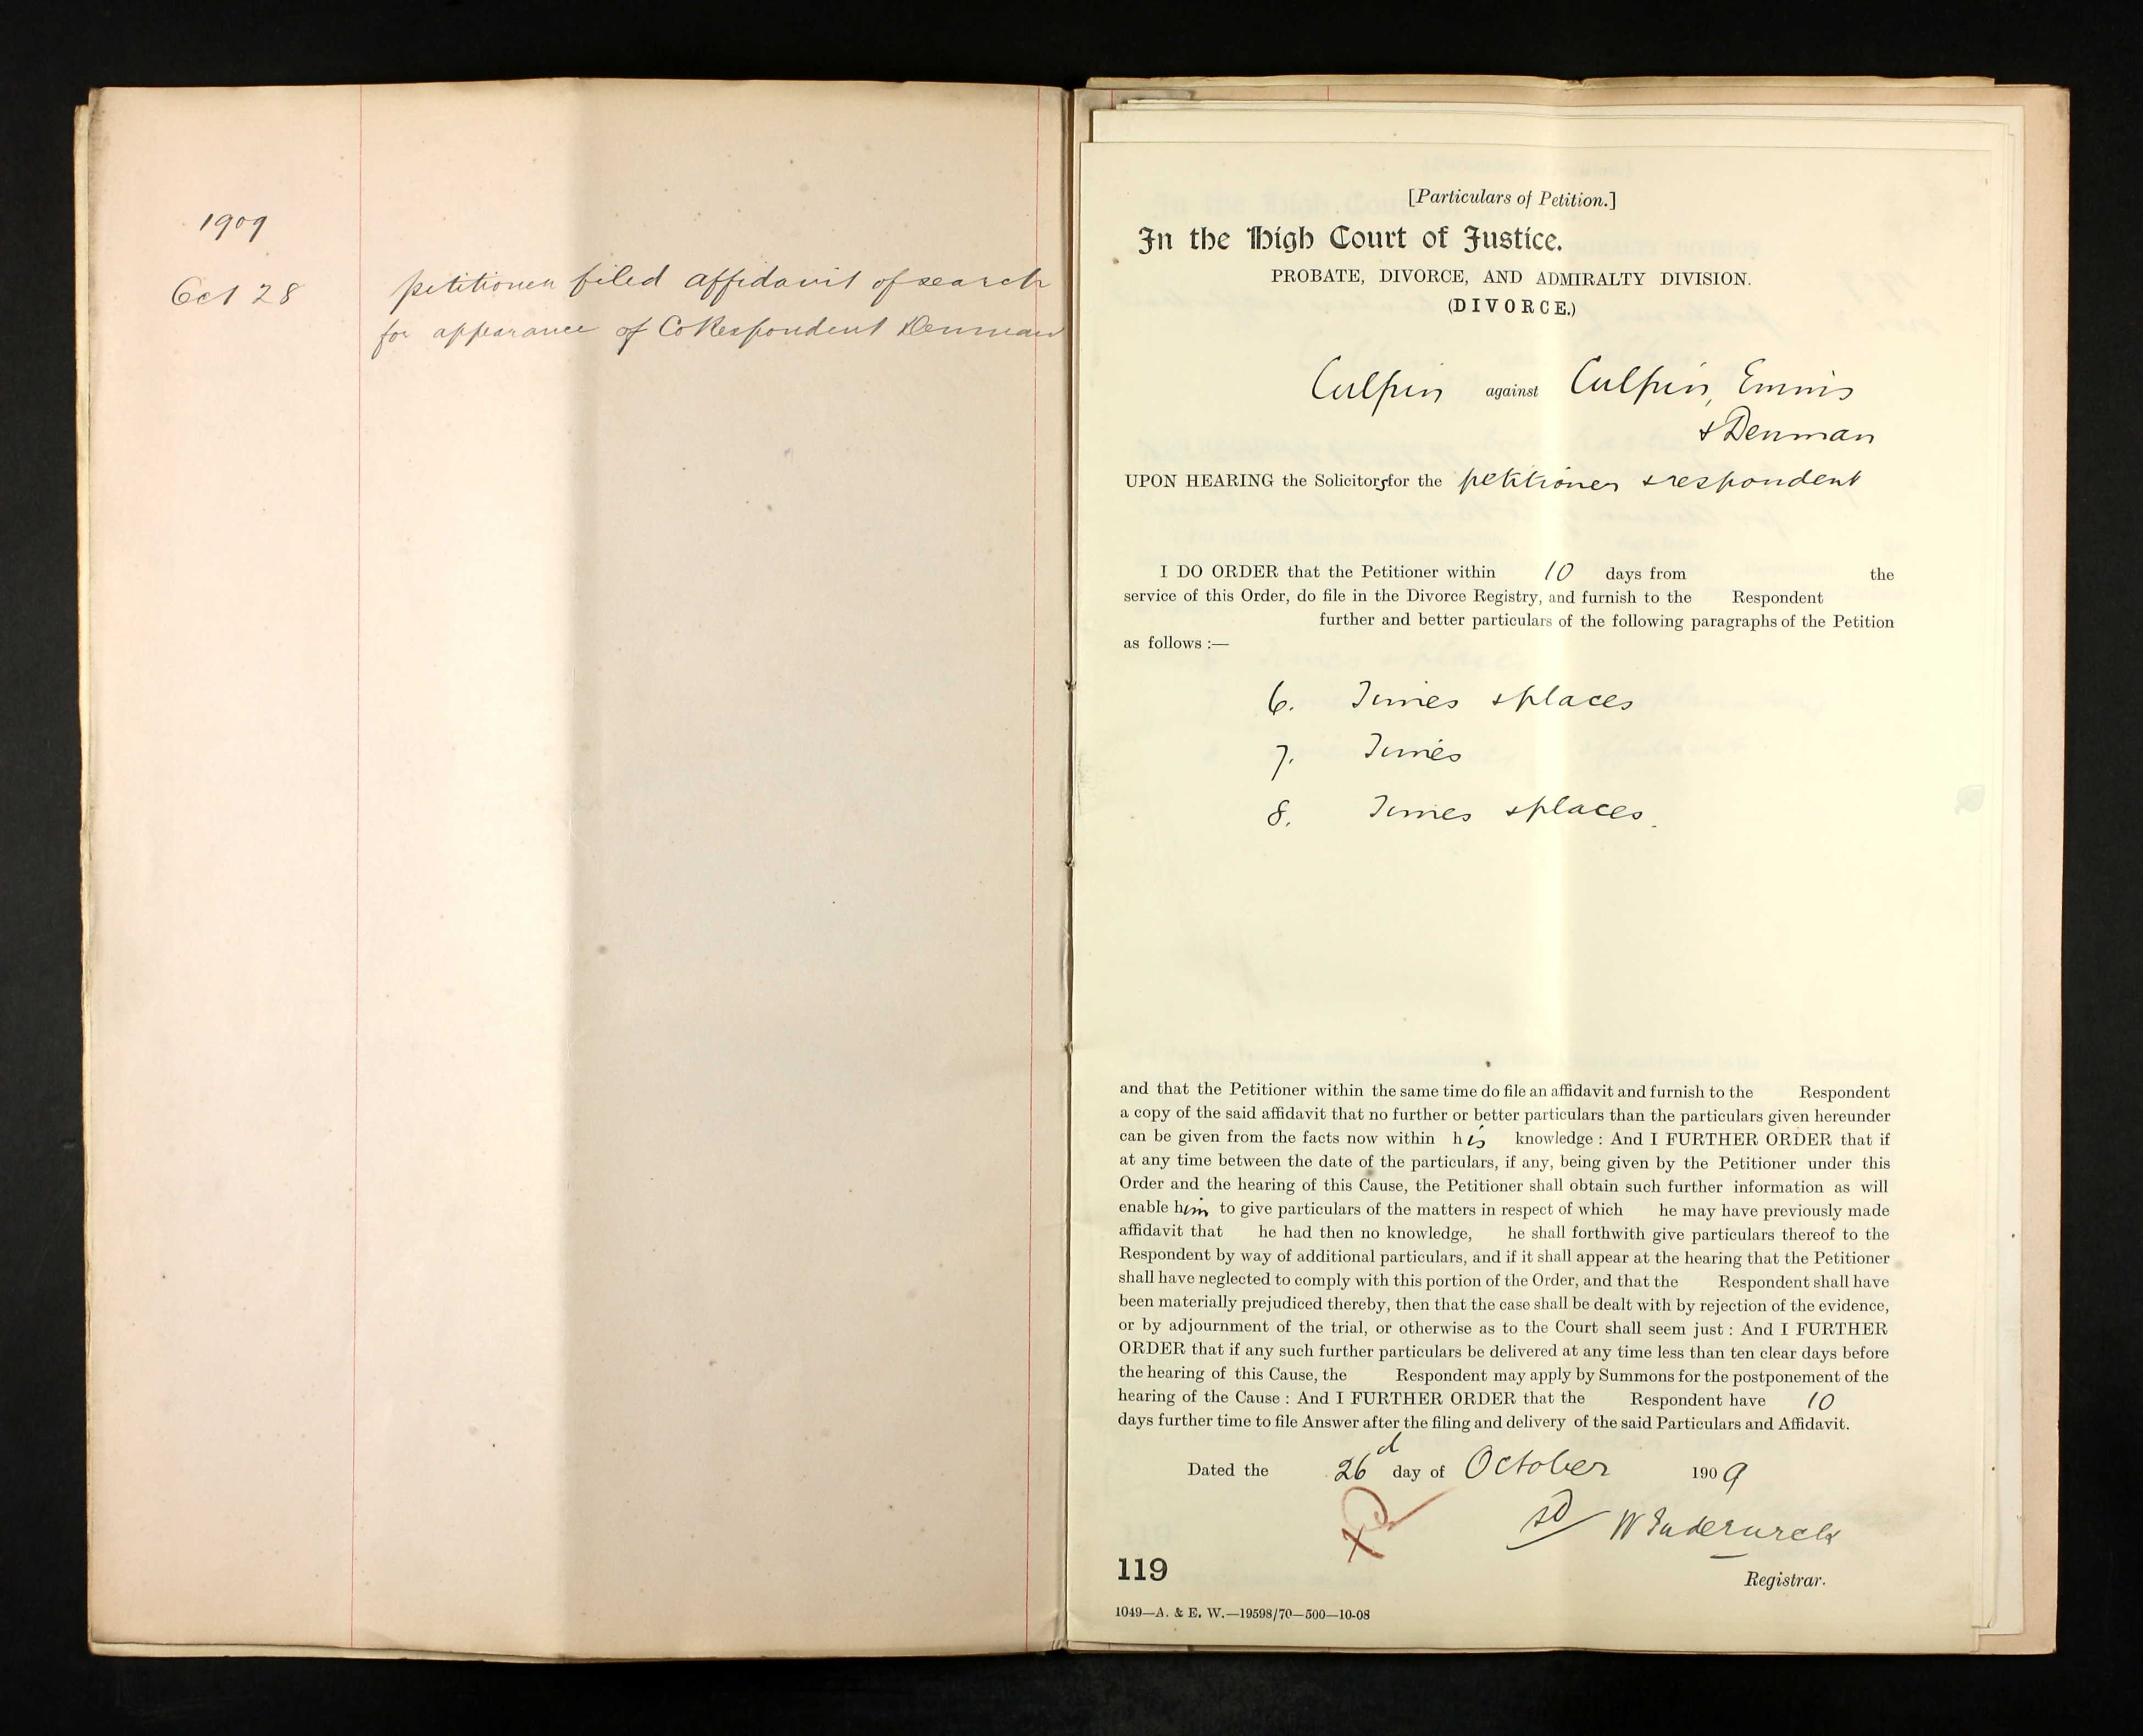 1909
Oct 28 petitioner filed affidavit of search
for appearance of CoRespondent Denman
[Particulars of Petition.]
In the High Court of Justice.
PROBATE, DIVORCE, AND ADMIRALTY DIVISION.
(DIVORCE.)
Culpin against Culpin, Ennis
& Denman
UPON HEARING the Solicitors for the petitioner & respondent
I DO ORDER that the Petitioner within 10 days from the
service of this Order, do file in the Divorce Registry, and furnish to the Respondent
further and better particulars of the following paragraphs of the Petition
as follows :—
6. Times & places
7. Times
8. Times & places.
and that the Petitioner within the same time do file an affidavit and furnish to the Respondent
a copy of the said affidavit that no further or better particulars than the particulars given hereunder
can be given from the facts now within his knowledge : And I FURTHER ORDER that if
at any time between the date of the particulars, if any, being given by the Petitioner under this
Order and the hearing of this Cause, the Petitioner shall obtain such further information as will
enable him to give particulars of the matters in respect of which he may have previously made
affidavit that he had then no knowledge, he shall forthwith give particulars thereof to the
Respondent by way of additional particulars, and if it shall appear at the hearing that the Petitioner
shall have neglected to comply with this portion of the Order, and that the Respondent shall have
been materially prejudiced thereby, then that the case shall be dealt with by rejection of the evidence,
or by adjournment of the trial, or otherwise as to the Court shall seem just : And I FURTHER
ORDER that if any such further particulars be delivered at any time less than ten clear days before
the hearing of this Cause, the Respondent may apply by Summons for the postponement of the
hearing of the Cause : And I FURTHER ORDER that the Respondent have 10
days further time to file Answer after the filing and delivery of the said Particulars and Affidavit.
Dated the 26d day of October 1909
sd W
119
Registrar.
1049—A. & E. W.—19598/70—500—10-08